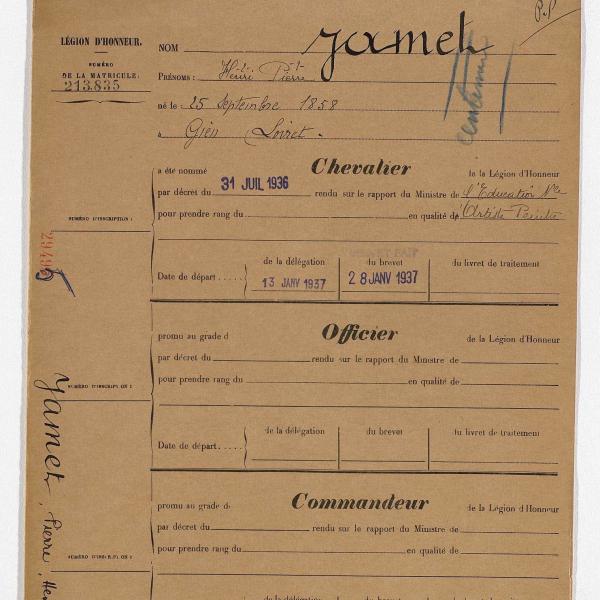 P.P
LÉGION D'HONNEUR.
NUMÉRO
DE LA MATRICULE:
213.835
NOM Jamet
PRÉNOMS: Henri Pierre
né le 25 Septembre 1858
à Gien Loiret.
centenaire
a été nommé Chevalier de la Légion d'Honneur
par décret du 31 JUIL 1936 rendu sur le rapport du Ministre de l'Education Nle
pour prendre rang du en qualité de Artiste Peintre
NUMÉRO D'INSCRIPTION:
de la délégation du brevet du livret de traitement
Date de départ..... 13 JANV 1937 28 JANV 1937
promu au grade d Officier de la Légion d'Honneur
par décret du rendu sur le rapport du Ministre de
pour prendre rang du en qualité de
NUMÉRO D'INSCRIPTION:
de la délégation du brevet du livret de traitement
Date de départ.....
promu au grade de Commandeur de la Légion d'Honneur
par décret du rendu sur le rapport du Ministre de
pour prendre rang du en qualité de
NUMÉRO D'INSCRIPTION:
de la délégation du brevet du livret de traitement
Jamet, Pierre, Hen